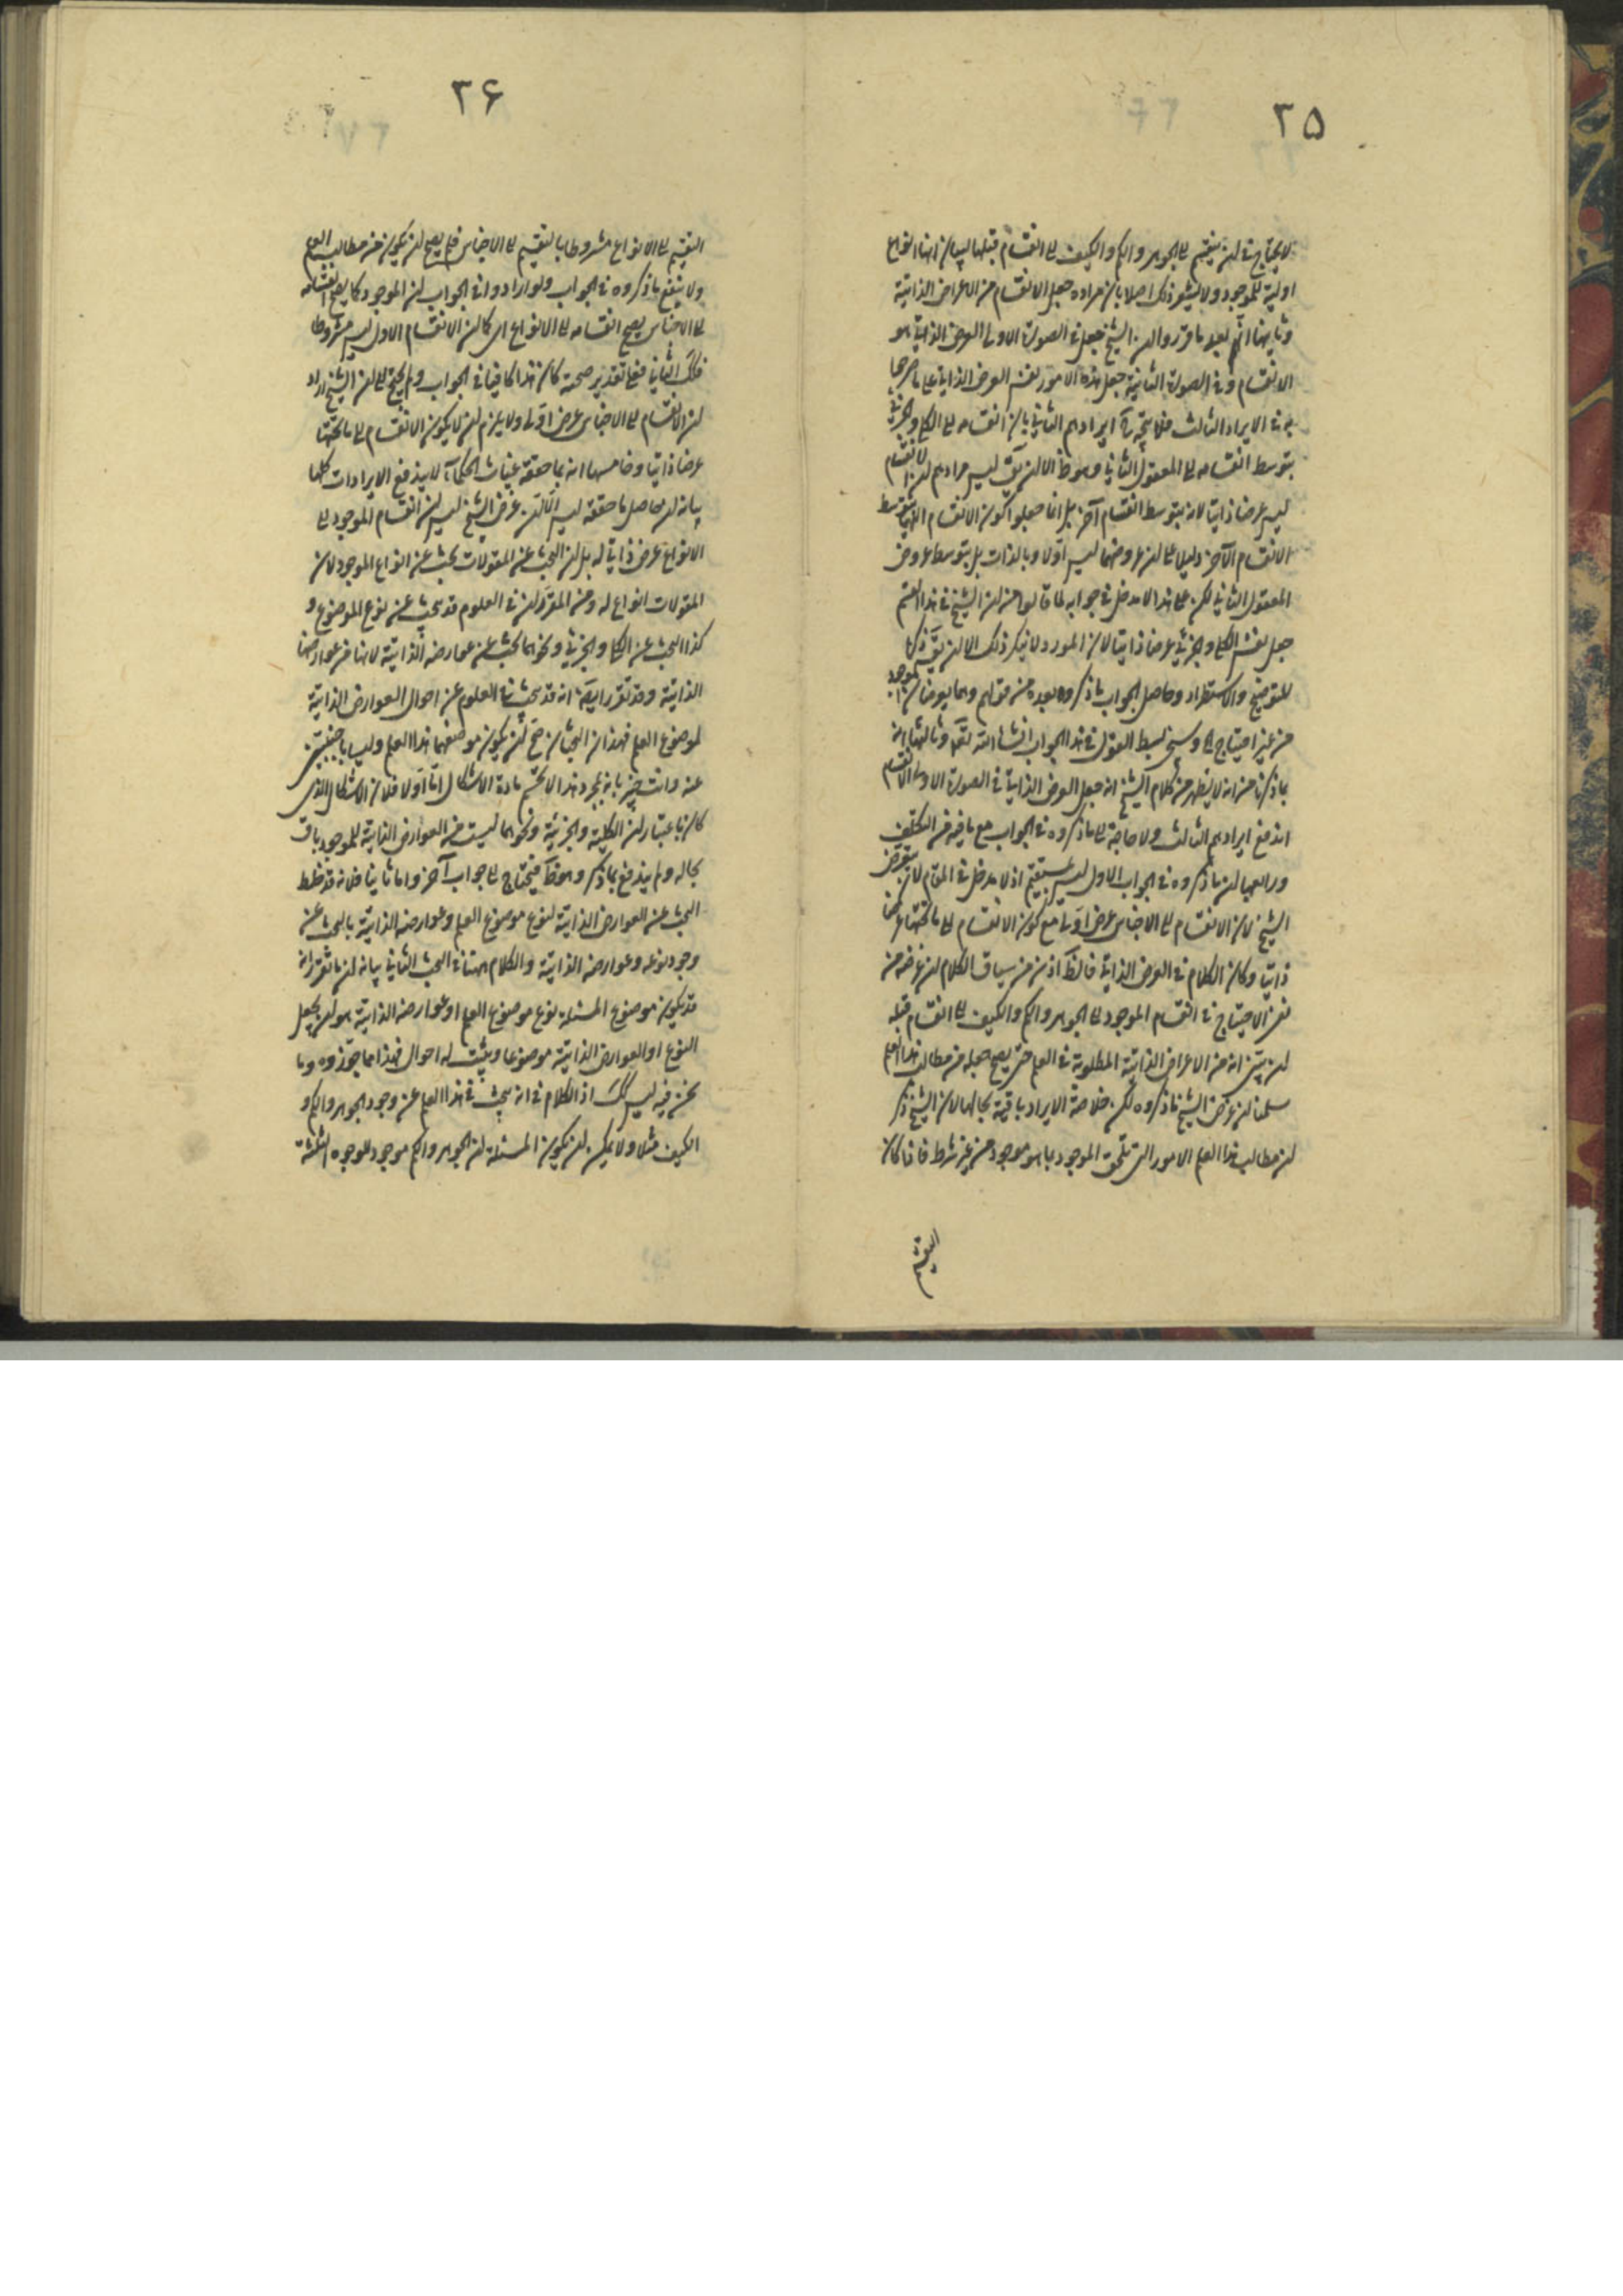 ٢٥
لا يحتاج فى ان ينقسم الى الجوهر والكم والكيف الى انقسام قبلها لبيان انها انواع
اولية للموجود ولا يشعر ذلك اصلا بان مراده جعل الانقسام من الاعراض الذاتية
وثانيها انهم بعد ما قرروا ان الشيخ جعل فى الصورة الاولى العرض الذاتى هو
الانقسام وفى الصورة الثانية جعل هذه الامور نفس العرض الذاتى على ما صرحوا
به فى الايراد الثالث فلا يتجه ايرادهم الثانى بان انقسامه الى الكلى والجزئى
بتوسط انقسامه الى المعقول الثانى وهو ظ الا ان يق ليس مرادهم ان الانقسام
ليس عرضا ذاتيا لانه بتوسط انقسام آخر بل انما جعلوا كون الانقسام بتوسط
الانقسام الآخر دليلا على ان عروضهما ليس اولا وبالذات بل بتوسط عروض
المعقول الثانى لكن على هذا لا مدخل فى جوابه لما قالوا من ان الشيخ فى هذا القسم
جعل نفس الكلى والجزئى عرضا ذاتيا لان المورد لا ينكر ذلك الا ان يق ذكره
للتوضيح والاستطراد وحاصل الجواب ما ذكروه بعده من قولهم وهما يعرضان الموجود
من غير احتياج الى وسيجئ بسط القول فى هذا الجواب انشاء الله تعالى وثالثها انه
بما ذكرنا من انه لا يظهر من كلام الشيخ انه جعل العرض الذاتى فى الصورة الاولى الانقسام
اندفع ايرادهم الثالث ولا حاجة الى ما ذكروه فى الجواب مع ما فيه من التكلف
ورابعها ان ما ذكروه فى الجواب الاول ليس بمستقيم اذ لا مدخل فى المقام لان غرض
الشيخ لان الانقسام الى الاجناس عرض اولى مع كون الانقسام الى ما تحتها عرضا
ذاتيا وكان الكلام فى العرض الذاتى فالظ اذن من سياق الكلام ان غرضه من
نفى الاحتياج فى انقسام الموجود الى الجوهر والكم والكيف الى انقسام قبله
ان يتبين انه من الاعراض الذاتية المطلوبة فى العلم حتى يصح جعله من مطالب هذا العلم
سلمنا ان غرض الشيخ ما ذكروه لكن خلاصة الايراد باقية بحالها لان الشيخ ذكر
ان مطالب هذا العلم الامور التى تلحق الموجود بما هو موجود من غير شرط فاذا كان
التقسيم
٢۶
التقسيم الى الانواع مشروطا بالتقسيم الى الاجناس فلم يصح ان يكون من مطالب العلم
ولا ينفع ما ذكروه فى الجواب ولو ارادوا فى الجواب ان الموجود كما يصح انقسامه
الى الاجناس يصح انقسامه الى الانواع اى كما ان الانقسام الاول ليس مشروطا
فكك الثانى فعلى تقدير صحته كان هذا كافيا فى الجواب ولم يحتج الى ان الشيخ اراد
ان الانقسام الى الاجناس عرض اولى ولا يلزم ان لا يكون الانقسام الى ما تحتها
عرضا ذاتيا وخامسها انه بما حققه غياث الحكماء لا يندفع الايرادات كلها
بيانه ان حاصل ما حققه ليس الا ان غرض الشيخ ليس ان انقسام الموجود الى
الانواع عرض ذاتى له بل ان البحث عن المقولات بحث عن انواع الموجود لان
المقولات انواع له ومن المقرر ان فى العلوم قد يبحث عن نوع الموضوع و
كذا البحث عن الكلى والجزئى ونحوهما بحث عن عوارضه الذاتية لانها من عوارضها
الذاتية وقد تقرر ايضا انه قد يبحث فى العلوم عن احوال العوارض الذاتية
لموضوع العلم فهذان البحثان صح ان يكون موضعهما هذا العلم وليسا باجنبيتين
عنه وانت خبير بانه بمجرد هذا لا تحسم مادة الاشكال اما اولا فلان الاشكال الذى
كان باعتبار ان الكلية والجزئية ونحوهما ليست من العوارض الذاتية للموجود باق
بحاله ولم يندفع بما ذكر وهو ظ فيحتاج الى جواب آخر واما ثانيا فلانه قد خلط
البحث عن العوارض الذاتية لنوع موضوع العلم وعوارضه الذاتية بالبحث عن
وجود نوعه وعوارضه الذاتية والكلام هنا فى البحث الثانى بيانه ان ما تقرر انه
قد يكون موضوع المسئلة نوع موضوع العلم او عوارضه الذاتية هو ان يجعل
النوع او العوارض الذاتية موضوعا ويثبت له احوال فهذا مما جوزوه وما
نحن فيه ليس كك اذ الكلام فى انه يبحث فى هذا العلم عن وجود الجوهر والكم و
الكيف مثلا ولا يمكن ان يكون المسئلة ان الجوهر والكم موجود للوجوه الثلثة